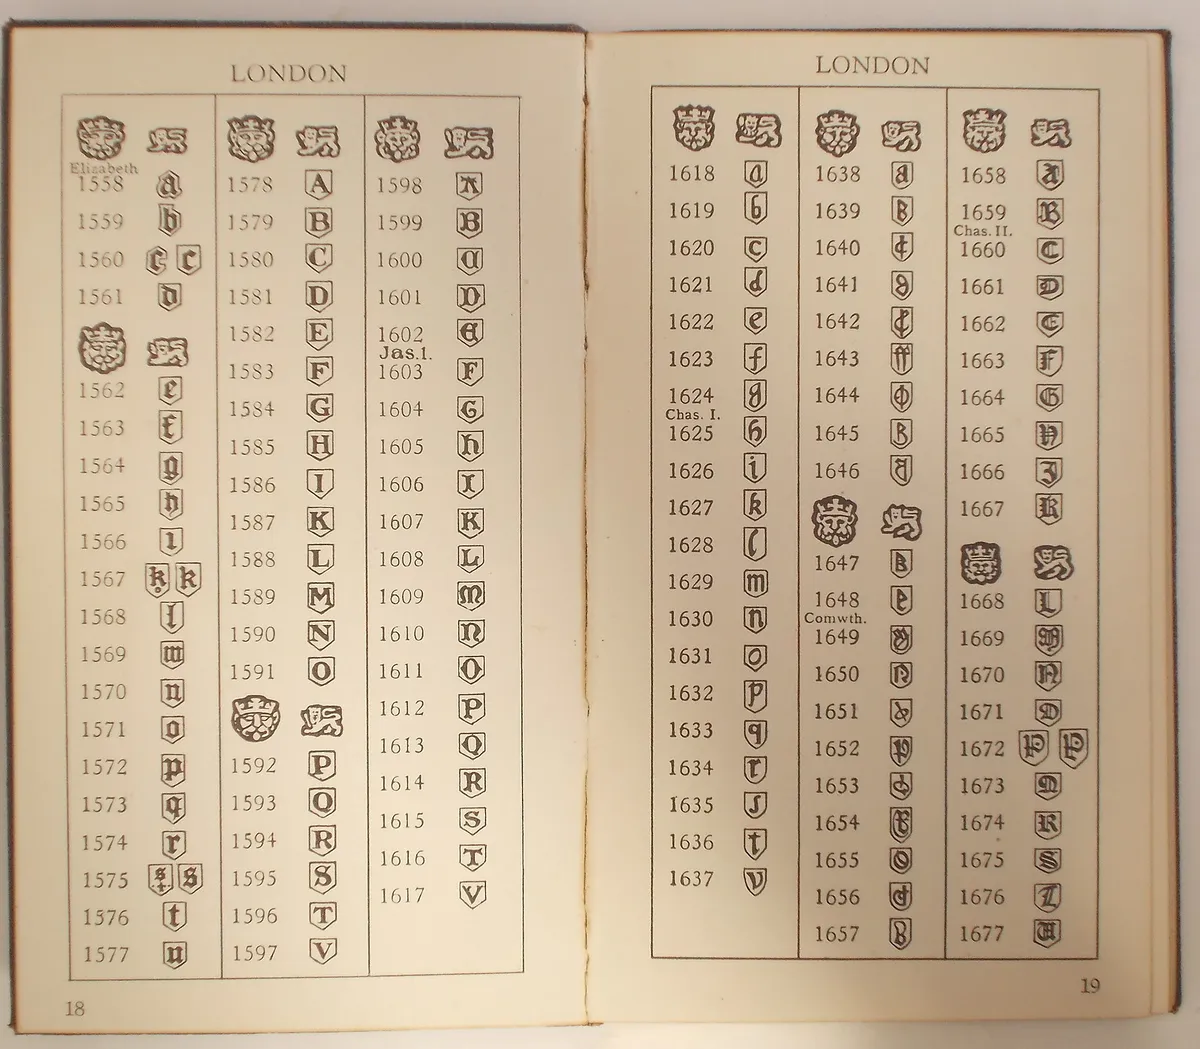 LONDON
Elizabeth
1558 a
1559 b
1560 c c
1561 d
1562 e
1563 f
1564 g
1565 h
1566 i
1567 k k
1568 l
1569 m
1570 n
1571 o
1572 p
1573 q
1574 r
1575 s s
1576 t
1577 u
1578 A
1579 B
1580 C
1581 D
1582 E
1583 F
1584 G
1585 H
1586 I
1587 K
1588 L
1589 M
1590 N
1591 O
1592 P
1593 Q
1594 R
1595 S
1596 T
1597 V
1598 A
1599 B
1600 C
1601 D
1602 E
Jas. I.
1603 F
1604 G
1605 h
1606 I
1607 K
1608 L
1609 M
1610 n
1611 O
1612 P
1613 Q
1614 R
1615 S
1616 T
1617 V
18
LONDON
1618 a
1619 b
1620 c
1621 d
1622 e
1623 f
1624 g
Chas. I.
1625 h
1626 i
1627 k
1628 l
1629 m
1630 n
1631 o
1632 p
1633 q
1634 r
1635 s
1636 t
1637 v
1638 a
1639
1640
1641
1642
1643 ff
1644
1645
1646
1647
1648
Comwth.
1649
1650
1651
1652
1653
1654
1655
1656
1657
1658 A
1659 B
Chas. II.
1660 C
1661 D
1662 E
1663 F
1664 G
1665 H
1666 I
1667 K
1668 L
1669 M
1670 N
1671 O
1672 P P
1673 Q
1674 R
1675 S
1676 T
1677 U
19